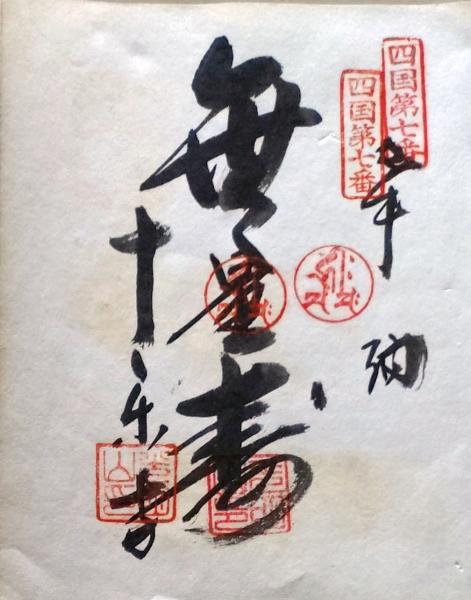 四国第七番
四国第七番
奉納
無量寿
十楽寺